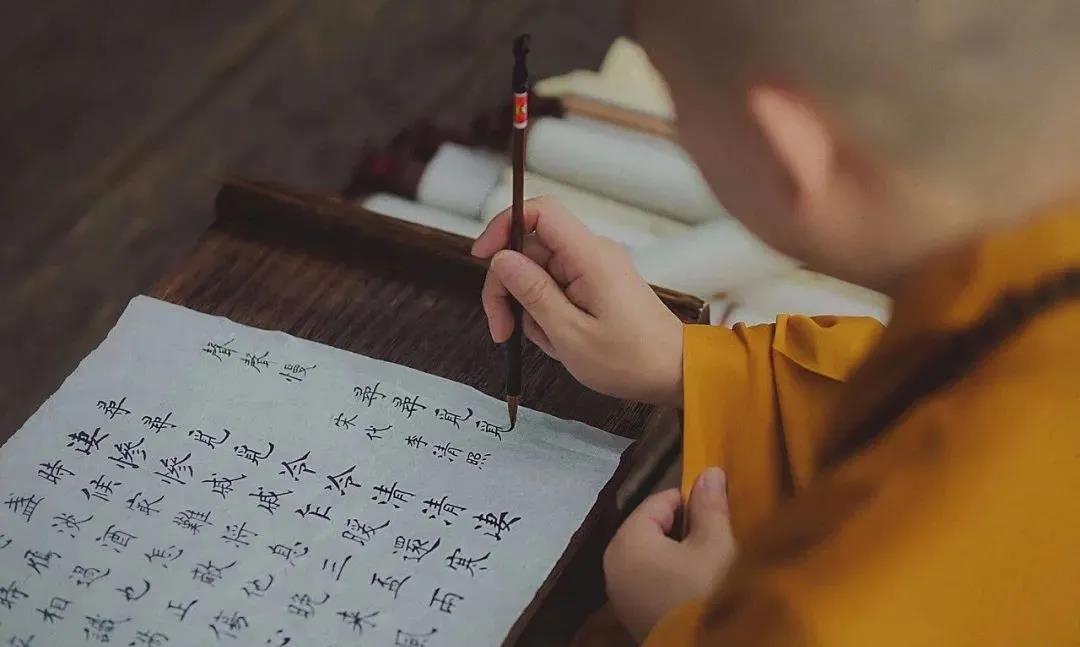 聲聲慢 尋尋覓覓
宋代 李清照
尋尋覓覓冷冷清清淒
淒慘慘戚戚乍暖還寒
時候最難將息三盃兩
盞淡酒怎敵他晚來風
雁過也正傷心
時相識滿